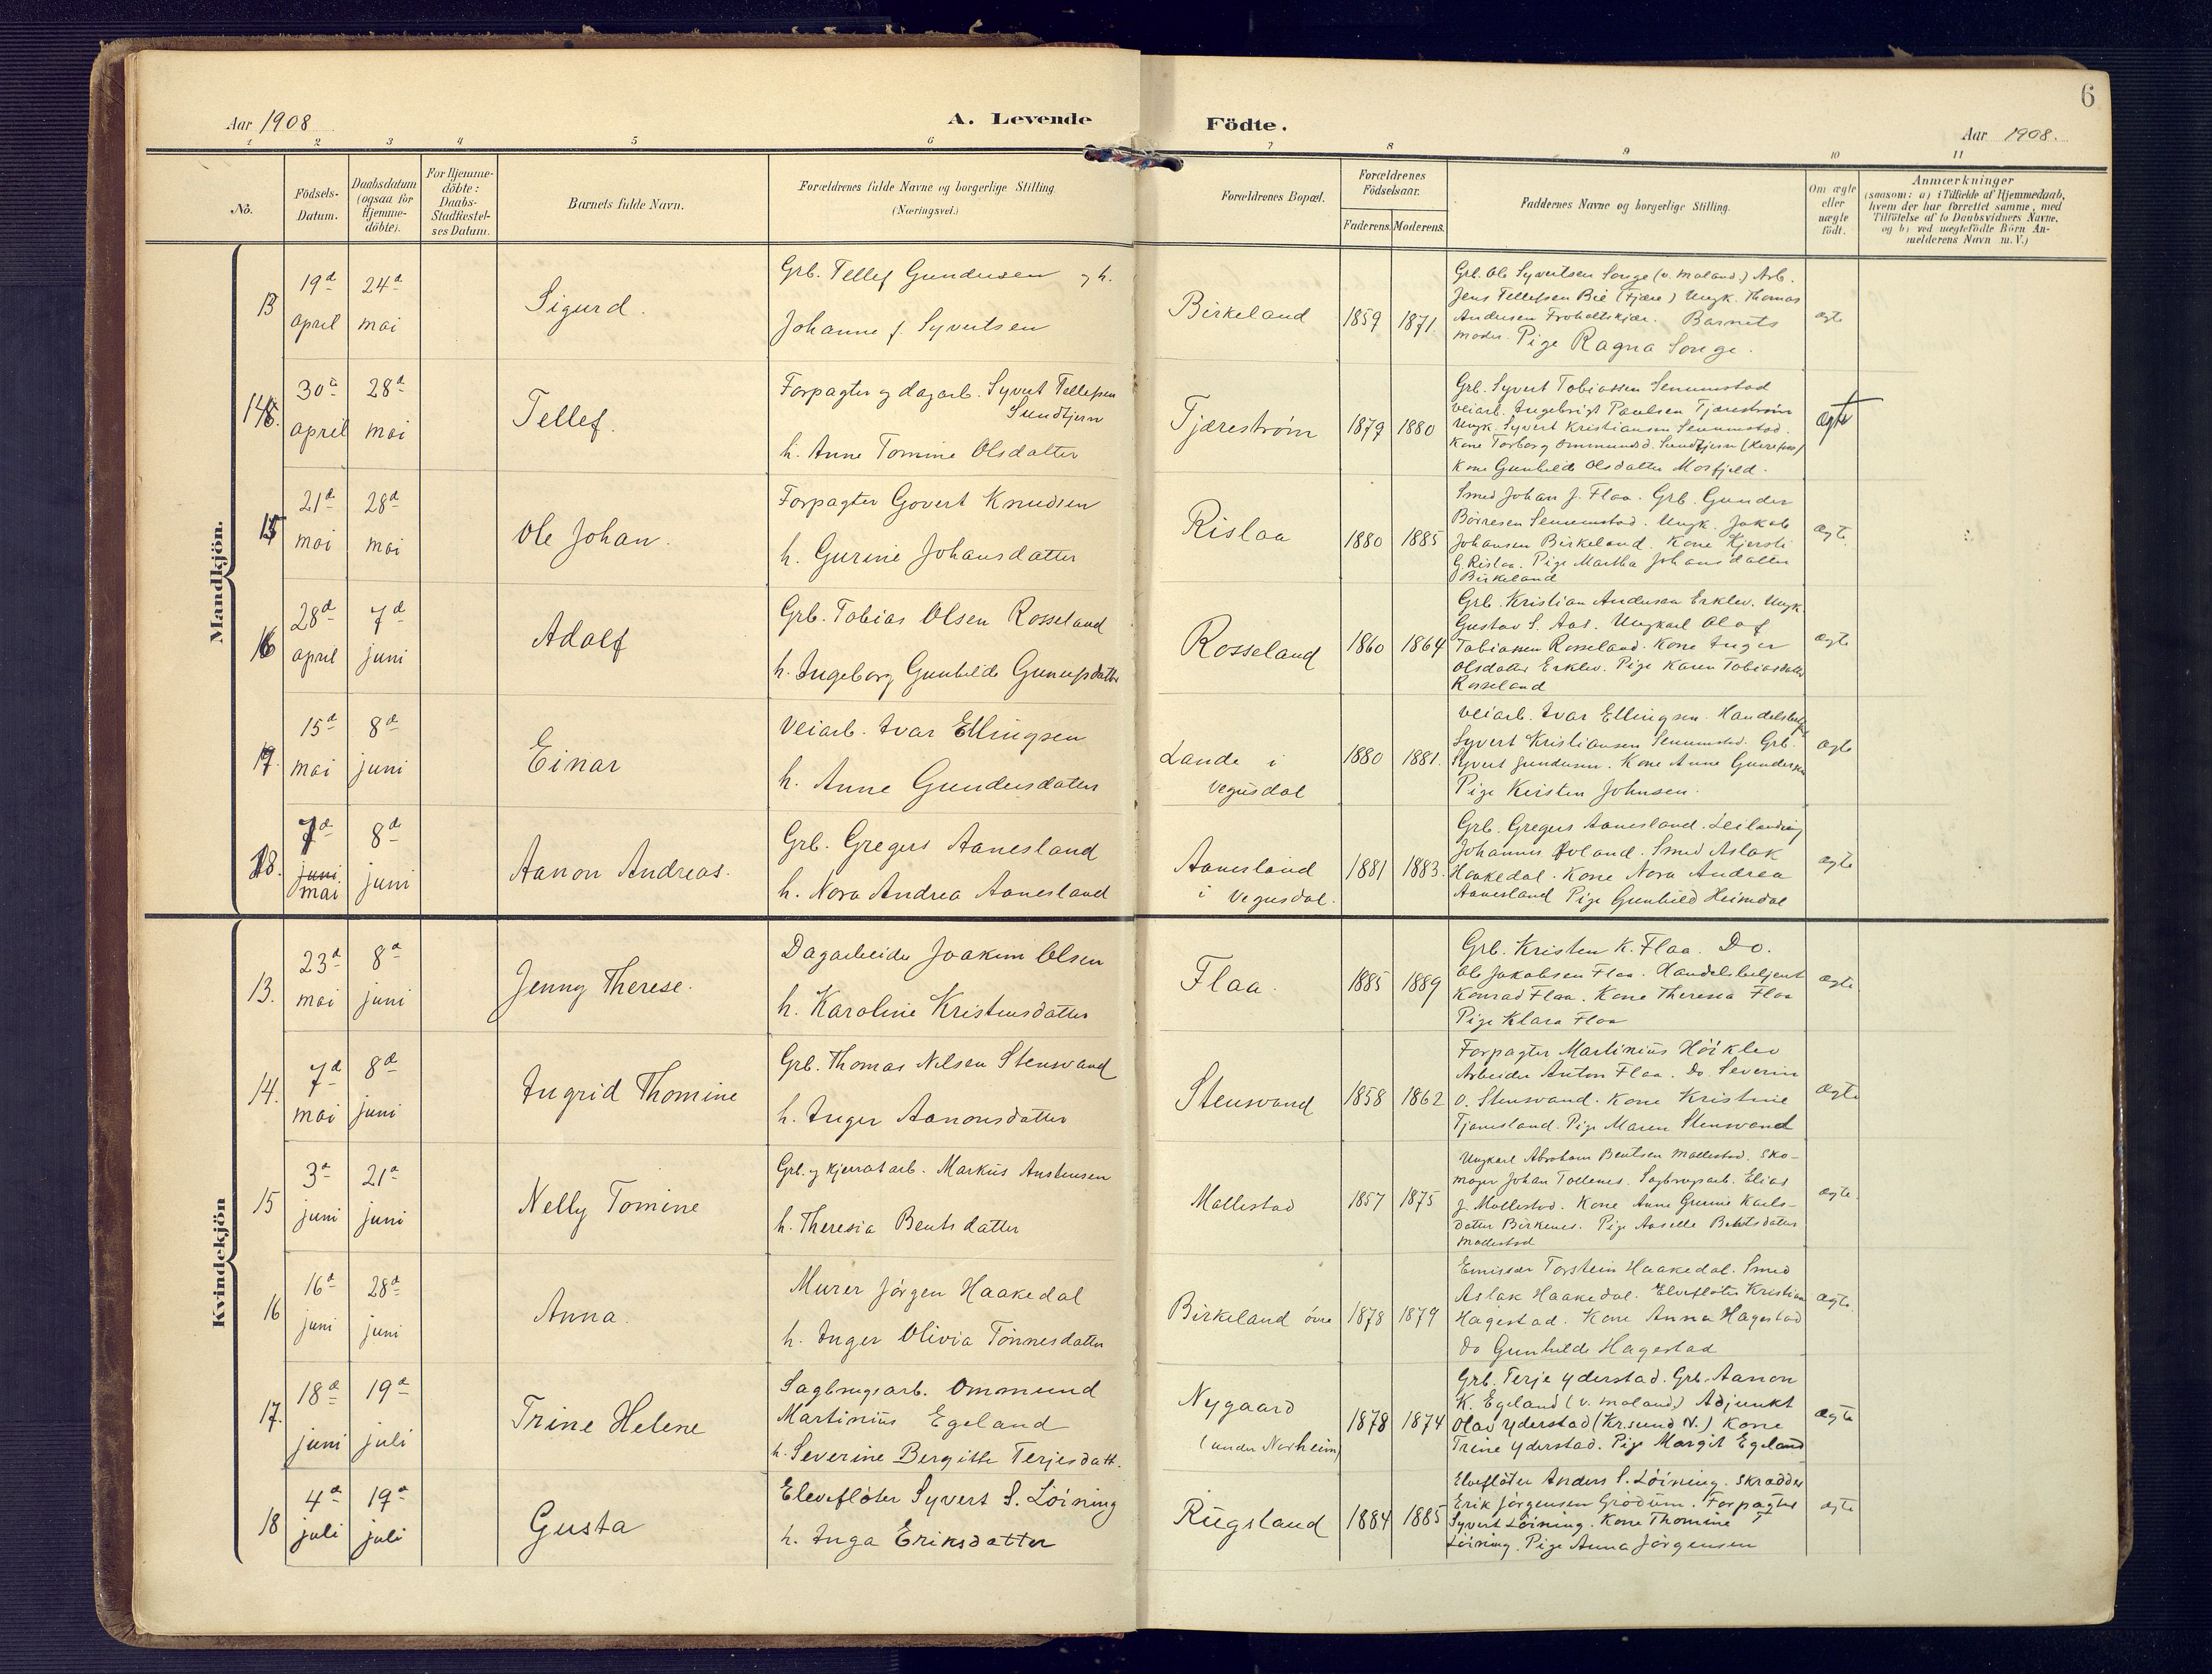 6
Aar 1908
A. Levende
Födte.
Aar 1908.
1 2 3 4 5 6 7 8 9 10 11
No.
Födsels-
Datum.
Daabsdatum
(ogsaa for
Hjemme-
döbte).
For Hjemme-
döbte:
Daabs-
Stadfæstel-
ses Datum.
Barnets fulde Navn.
Forældrenes fulde Navne og borgerlige Stilling.
(Næringsvei.)
Forældrenes Bopæl.
Forældrenes
Födselsaar.
Faderens. Moderens.
Faddernes Navne og borgerlige Stilling.
Om ægte
eller
uægte
födt.
Anmærkninger
(saasom: a) i Tilfælde af Hjemmedaab,
hvem der har forrettet samme, med
Tilföielse af to Daabsvidners Navne,
og b) ved uægtefödte Börn An-
melderens Navn m. V.)
Mandkjön.
13
19d april
24d mai
Sigurd.
Grb. Tellef Gundersen og h.
Johanne f. Syvertsen
Birkeland
1859 1871
Grb. Ole Syvertsen Songe (v. Moland.) Arb.
Jens Tellefsen Bie (Fjære) Ungk. Thomas
Andersen Froholtskjær. Barnets
moder. Pige Ragna Songe.
ægte
14.
30d april
28d mai
Tellef.
Forpagter og dagarb. Syvert Tellefsen
Sundtjern
h. Anne Tomine Olsdatter
Tjærestrøm
1879 1880
Grb. Syvert Tobiassen Senumstad
Veiarb. Ingebrigt Paulsen Tjærestrøm
Ungk. Syvert Kristiansen Senumstad.
Kone Torborg Ommundsd. Sundtjern
Kone Gunhilde Olsdatter Mosfjeld.
ægte
15
21d mai
28d mai
Ole Johan.
Forpagter Govert Knudsen
h. Gurine Johansdatter
Rislaa
1880 1885
Smed Johan J. Flaa. Grb. Gunder
Børresen Senumstad. Ungk. Jakob
Johansen Birkeland. Kone Kjersti
G. Rislaa. Pige Martha Johansdatter
Birkeland
ægte.
16
28d april
7d juni
Adolf
Grb. Tobias Olsen Rosseland
h. Ingeborg Gunhilde
Rosseland
1860 1864
Grb. Kristian Andersen Erklev. Ungk.
Gustav S. Aas. Ungkarl Olaf
Tobiassen Rosseland. Kone Inger
Olsdatter Erklev. Pige Karen Tobiasdatter
Rosseland
ægte
17.
15d mai
8d juni
Einar
Veiarb. Ivar Ellingsen
h. Anne Gundersdatter
Lande i
Vegusdal
1880 1881.
Veiarb. Ivar Ellingsen. Handelsbetj.
Syvert Kristiansen Senumstad. Grb.
Syvert Gundersen. Kone Anne Gundersen
Pige Kirsten Johnsen.
ægte
18.
7d juni mai
8d juni
Aanon Andreas.
Grb. Gregers Aanesland
h. Nora Andrea Aanesland
Aanesland
i Vegusdal.
1881 1883.
Grb. Gregers Aanesland. Leilænding
Johannes Holand. Smed Aslak
Haakedal. Kone Nora Andrea
Aanesland Pige Gunhild Heimdal
ægte
Kvindekjön
13.
23d mai
8d juni
Jenny Therese.
Dagarbeider Joakim Olsen
h. Karoline Kristensdatter
Flaa.
1885 1889
Grb. Kristen K. Flaa. Do.
Ole Jakobsen Flaa. Handelsbetjent
Konrad Flaa. Kone Theresa Flaa
Pige Klara Flaa
ægte.
14.
7d mai
8d juni
Ingrid Thomine
Grb. Thomas Nilsen Stensvand
h. Inger Aanonsdatter
Stensvand
1858 1862
Forpagter Martinius Höiklev
Arbeider Anton Flaa. Do. Severin
O. Stensvand. Kone Kristine
Tjomesland. Pige Maren Stensvand
ægte
15
3d juni
21d juni
Nelly Tomine
Grb. og kjerratarb. Markus Anstensen
h. Theresia Bentsdatter
Mollestad
1857 1875
Ungkarl Abraham Bentsen Mollestad. Sko-
mager Johan Tollenes. Sagbrugsarb. Elias
J. Mollestad. Kone Anne Gurine Karls-
datter Birkenes. Pige Aaselle Bentsdatter
Mollestad
ægte.
16
16d juni
28d juni
Anna.
Murer Jörgen Haakedal
h. Inger Olivia Tönnesdatter
Birkeland övre
1878 1879
Emissær Torstein Haakedal. Smed
Aslak Haakedal. Elveflöter Kristian
Hagestad. Kone Anna Hagestad
Do Gunhilde Hagestad
ægte.
17.
18d juni
19d juli
Trine Helene
Sagbrugsarb. Ommund
Martinius Egeland
h. Severine Bergitte Terjesdatt.
Nygaard
(under Norheim)
1878 1874
Grb. Terje Yderstad. Grb. Aanon
K. Egeland (v. Moland.) Adjunkt
Olav Yderstad (Kr.sund N.) Kone
Trine Yderstad. Pige Margit Egeland
ægte
18
4d juli
19d juli
Gusta
Elveflöter Syvert S. Löining
h. Inga Eriksdatter
Rugsland
1884 1885
Elveflöter Anders S. Löining. Skrædder
Erik Jörgensen Grödum. Forpagter
Syvert Löining. Kone Thomine T
Löining. Pige Anna Jörgensen
ægte